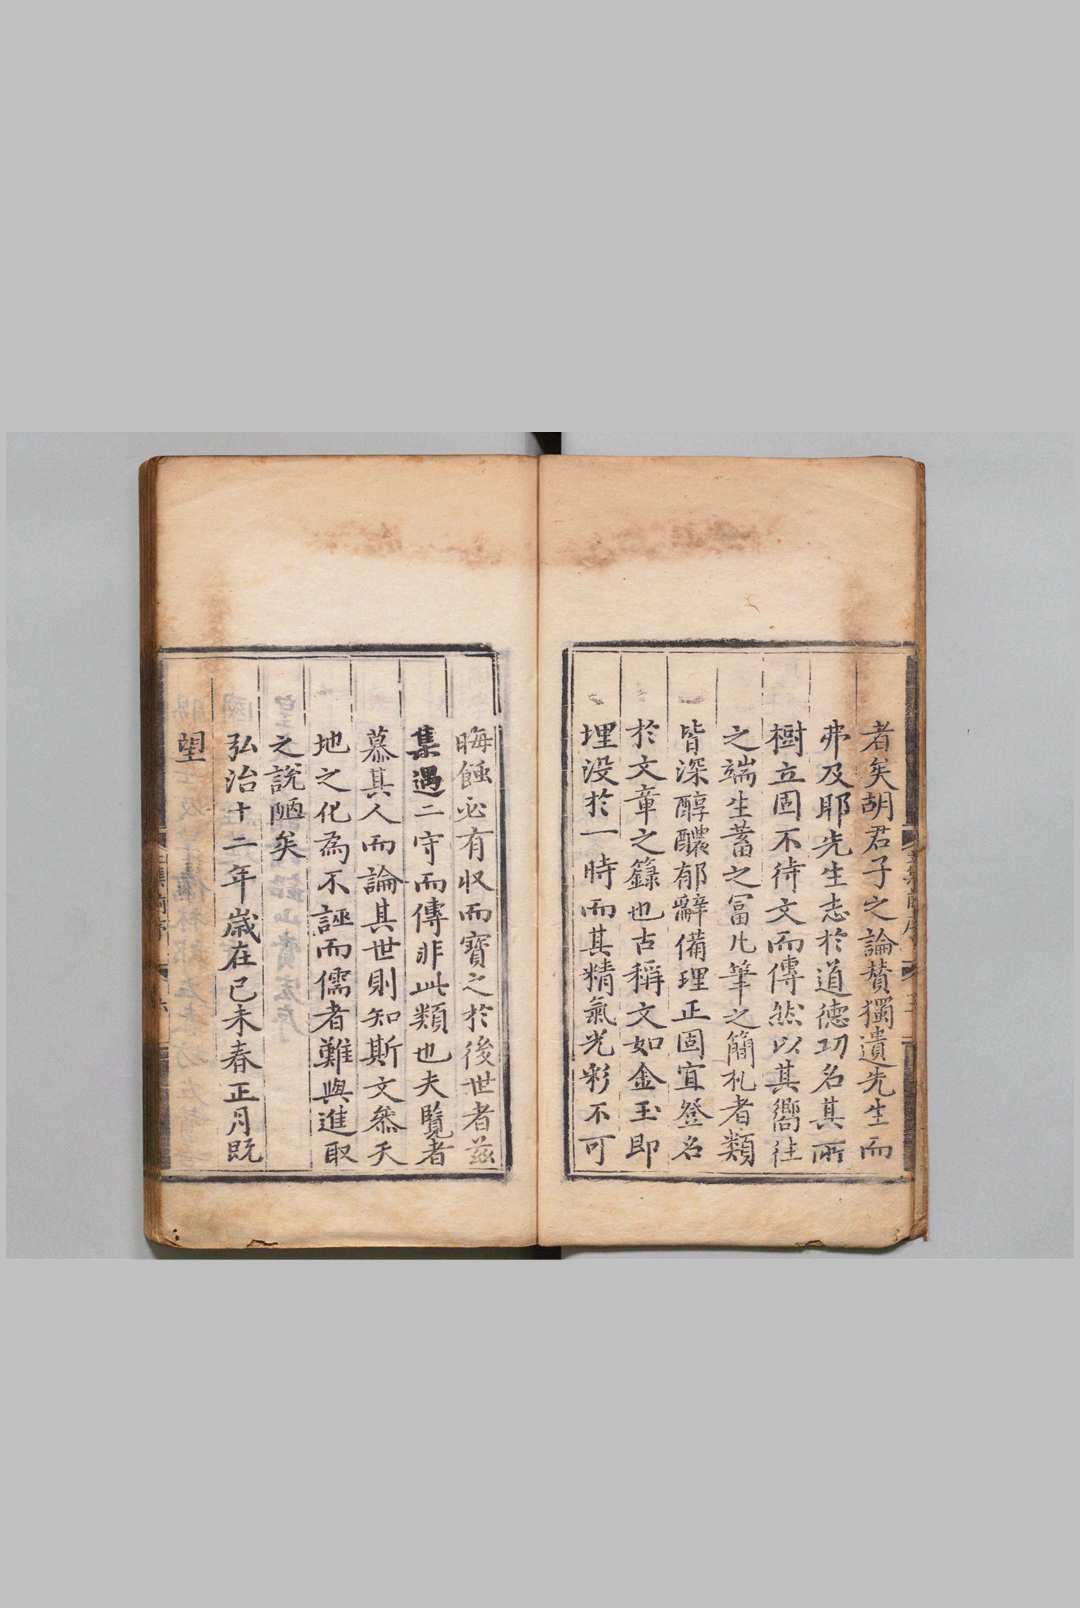 者矣胡君子之論贊獨遺先生而
弗及耶先生志於道德功名其所
樹立固不待文而傳然以其嚮往
之端生蓄之冨凡筆之簡札者類
皆深醇醲郁辭備理正固宜登名
於文章之籙也古稱文如金玉即
埋没於一時而其精氣光彩不可
晦蝕必有収而寶之於後世者兹
集遇二守而傳非此類也夫覽者
慕其人而論其世則知斯文叅天
地之化為不誣而儒者難與進取
之說陋矣
弘治十二年嵗在己未春正月既
望